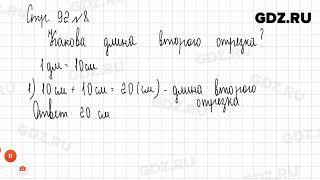 Стр. 92 №8
GDZ.RU
Какова длина второго отрезка?
1 дм = 10 см
1) 10 см + 10 см = 20 (см) - длина второго
отрезка
Ответ: 20 см
GDZ.RU
GDZ.RU
GDZ.RU